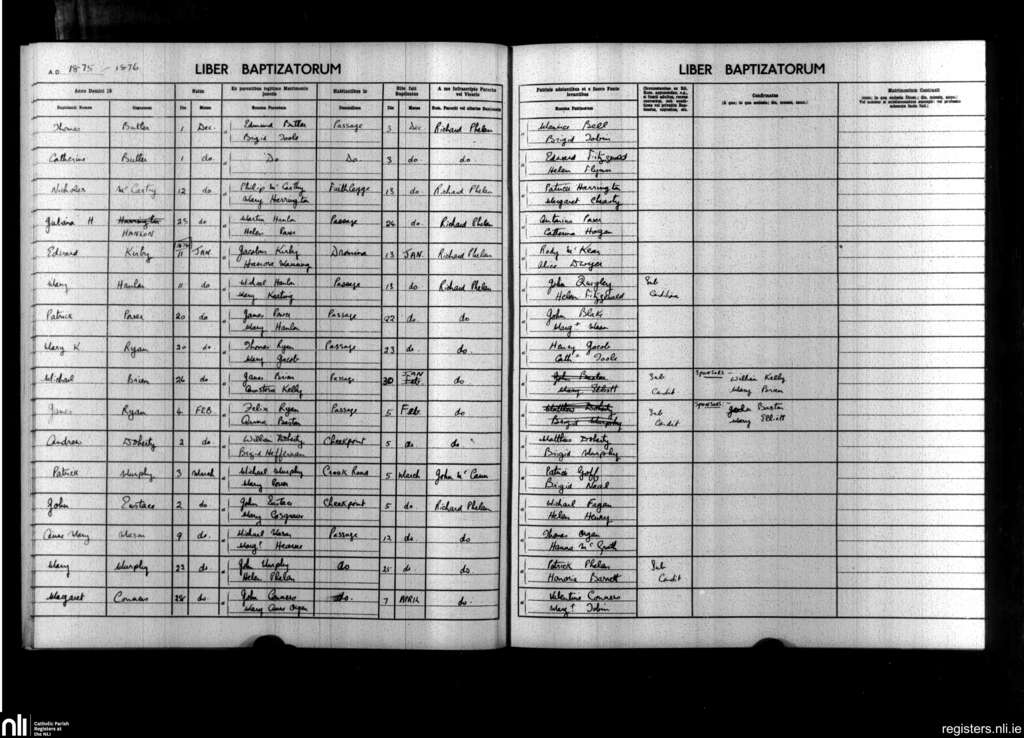 A.D. 1875 - 1876
LIBER BAPTIZATORUM
Anno Domini 18
Natus
Ex parentibus legitimo Matrimonio junctis
Habitantibus in
Rite fuit Baptizatus
A me infrascripto Parocho vel Vicario
Baptizati Nomen
Cognomen
Die
Mense
Nomina Parentum
Domicilium
Die
Mense
Nom. Parochi vel alterius Baptizantis
Thomas Butler 1 Dec. Edmund Butler Passage 3 Dec Richard Phelan
Brigid Toole
Catherine Butler 1 do Do Do 3 do. do.
Nicholas McCarthy 12 do Philip McCarthy Faithlegge 13 do Richard Phelan
Mary Harrington
Juliana H. Harrington 25 do Martin Hanlon Passage 26 do Richard Phelan
HANLON Helen Power
Edward Kirby 1876 11 JAN. Jacobus Kirby Dromina 13 JAN. Richard Phelan
Honora Manning
Mary Hanlon 11 do Michael Hanlon Passage 13 do Richard Phelan
Mary Keating
Patrick Power 20 do James Power Passage 22 do do
Mary Hanlon
Mary K Ryan 20 do Thomas Ryan Passage 23 do. do.
Mary Jacob
Michael Brien 26 do James Brien Passage 30 JAN Feb. do
Anastasia Kelly
James Ryan 4 FEB Felix Ryan Passage 5 Feb do
Anna Barton
Andrew Doherty 2 do. William Doherty Cheekpoint 5 do do
Brigid Heffernan
Patrick Murphy 3 March Michael Murphy Crook Road 5 March John McCann
Mary Power
John Eustace 2 do. John Eustace Cheekpoint 5 do Richard Phelan
Mary Cosgrave
Anne Mary 9 do. Michael Passage 12 do do
Margt Hearne
Mary Murphy 23 do John Murphy do 25 do do.
Helen Phelan
Margaret Connors 28 do. John Connors do. 7 APRIL do.
Mary Anne Organ
LIBER BAPTIZATORUM
Patrinis adstantibus et e Sacro Fonte levantibus
Nomina Patrinorum
Confirmatus
(A quo; in qua ecclesia; die, mense, anno.)
Matrimonium Contraxit
Maurice Bell
Brigid Tobin
Edward Fitzgerald
Helen Flynn
Patrick Harrington
Margaret
Antonina Power
Catherine Hogan
Rody McKean
Alice Dwyer
John Quigley Sub
Helen Fitzgerald Conditione
John Blake
Margt
Henry Jacob
Cath. Toole
John Barton Sub Sponsors:- William Kelly
Mary Elliott Condit Mary Brien
Matthew Doherty Sub Sponsors:- John Barton
Brigid Murphy Condit Mary Elliott
Matthew Doherty
Brigid Murphy
Patrick Goff
Brigid Neal
Michael Fagan
Helen Henry
Thomas Organ
Hanna McGrath
Patrick Phelan Sub
Honoria Barnett Condit
Valentine Connors
Margt Tobin
nli Catholic Parish Registers at the NLI
registers.nli.ie